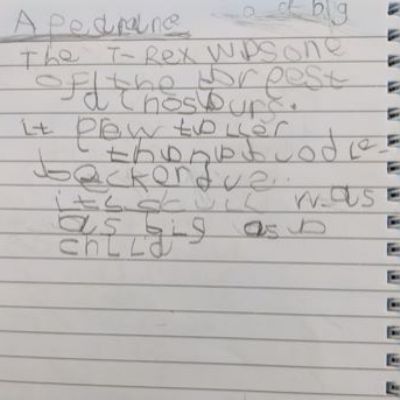 A Pedraine a d big
The T-Rex was one
of the largest
dinosaurs.
it grew taller
than a double
deckerdus.
its skull was
as big as a
child